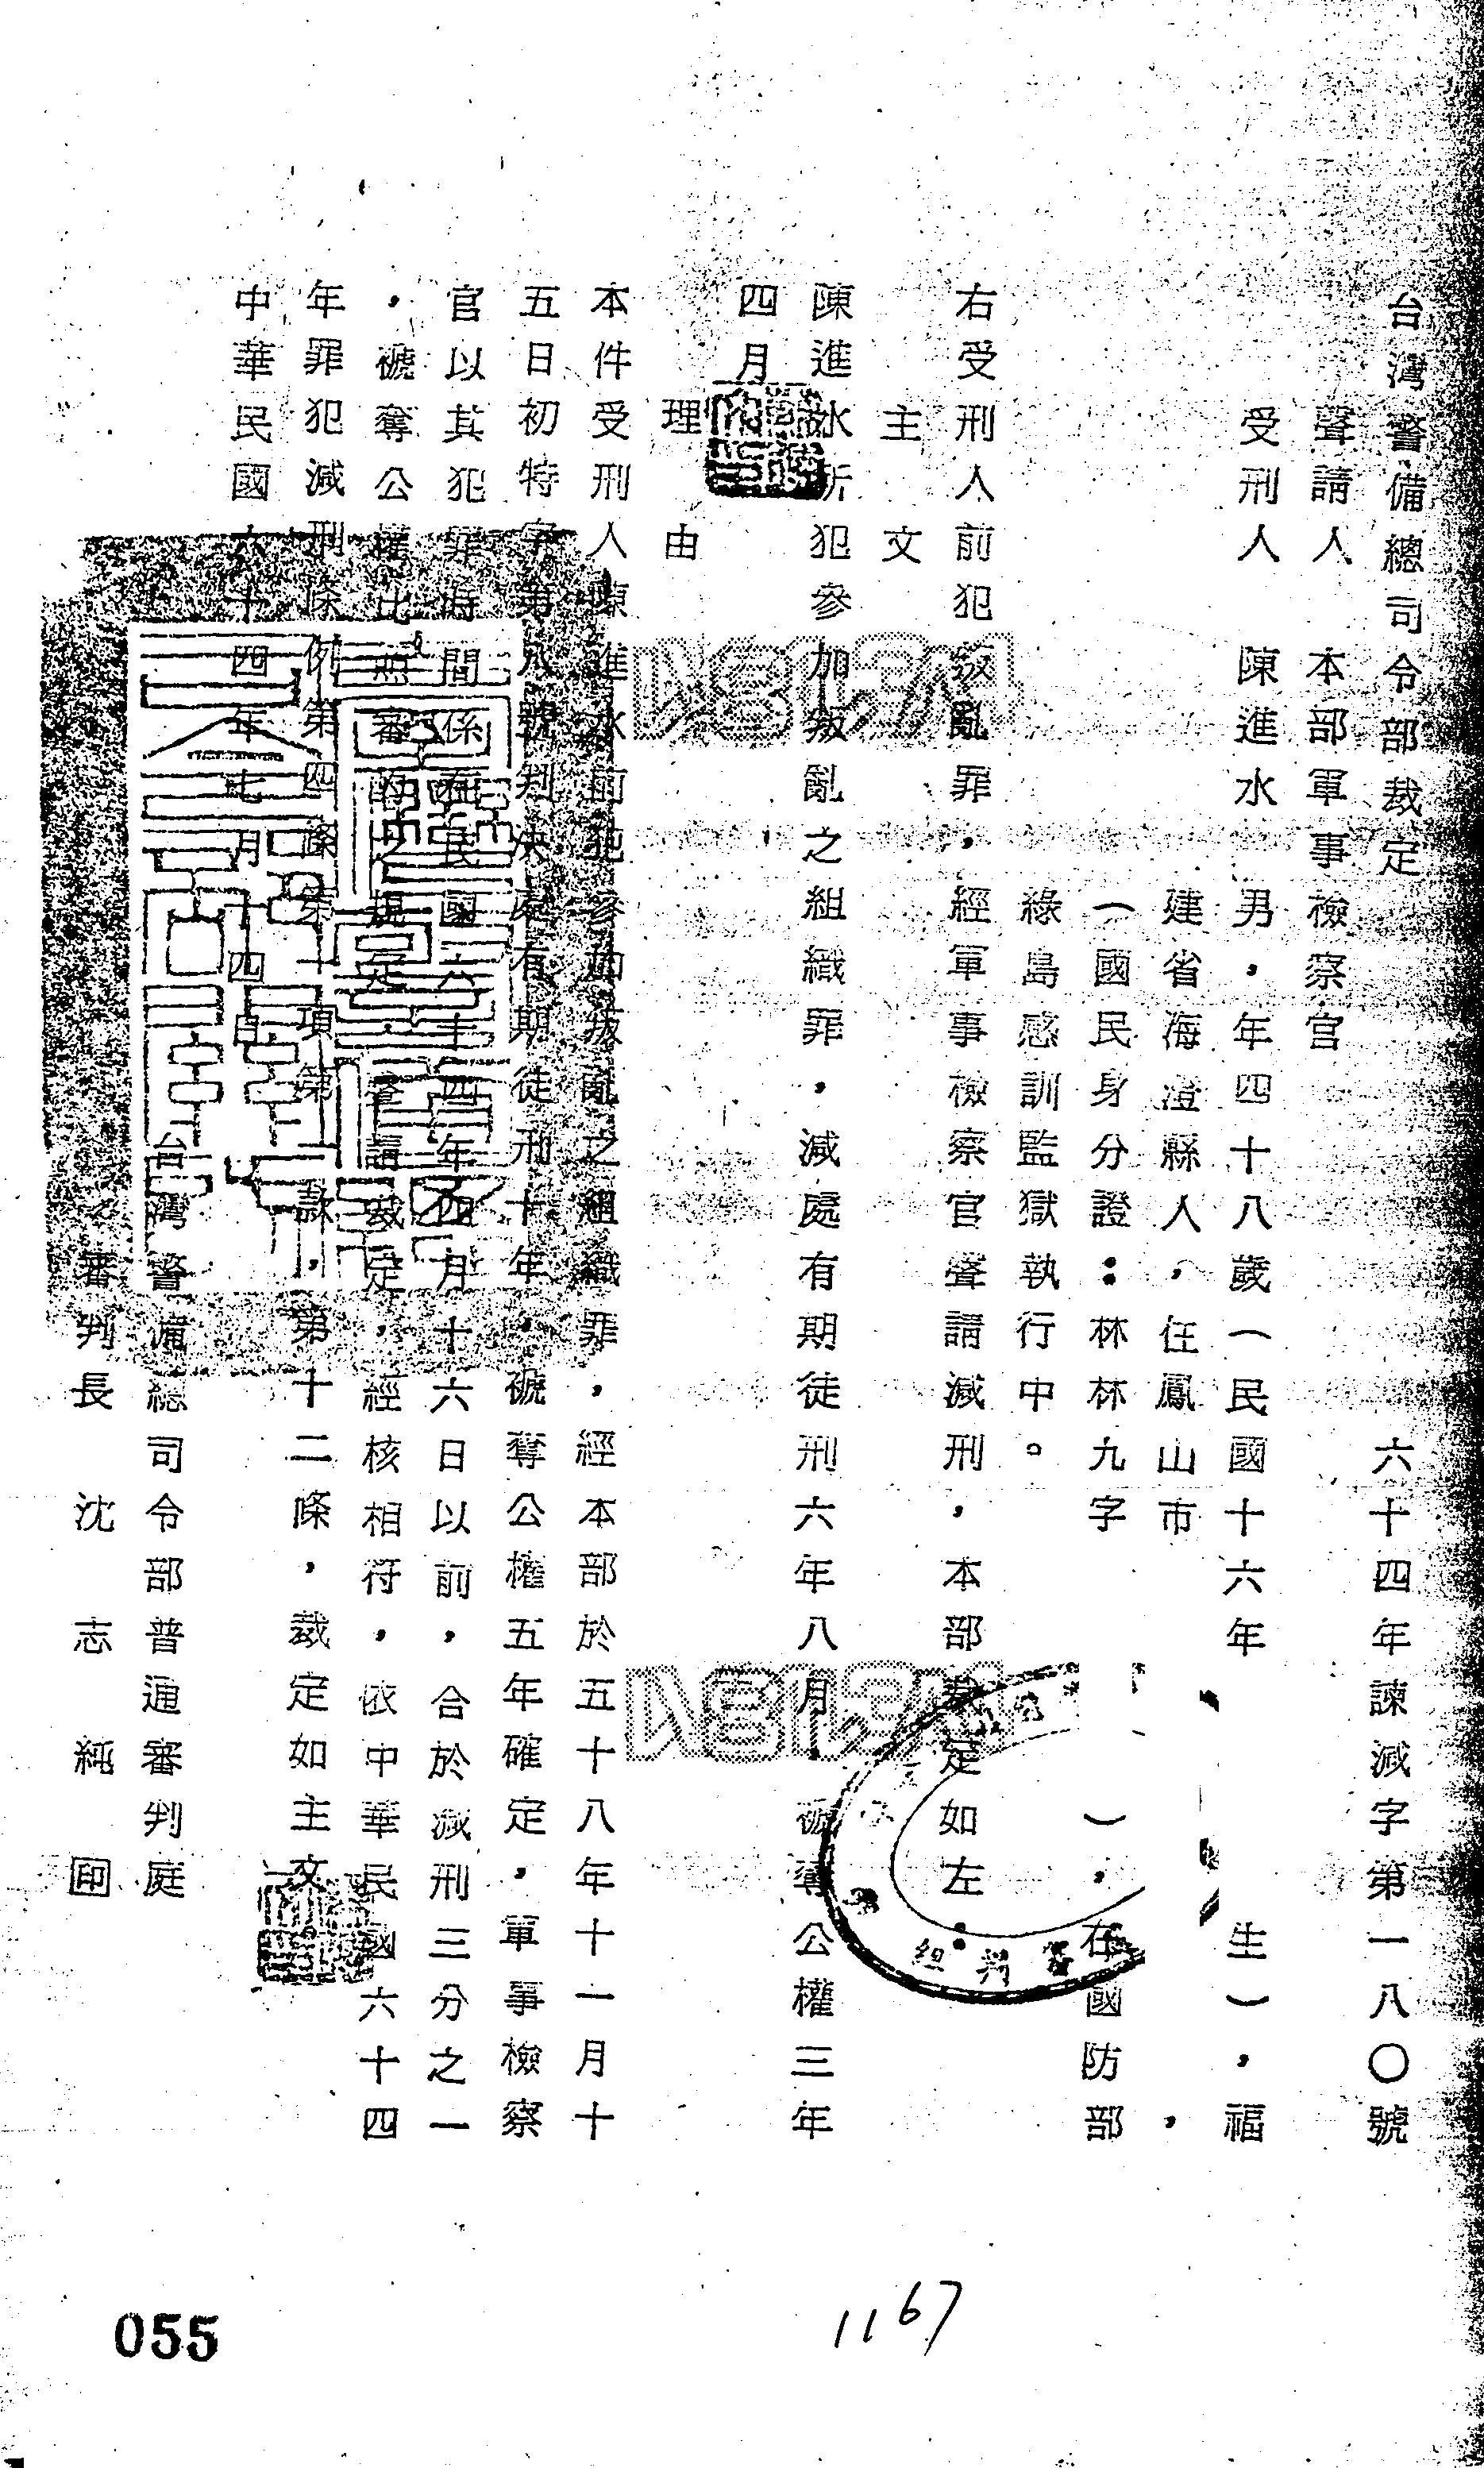 台灣警備總司令部裁定 六十四年諫減字第一八〇號
聲請人 本部軍事檢察官
受刑人 陳進水 男,年四十八歲(民國十六年 生),福
建省海澄縣人,任鳳山市 ,
(國民身分證:林林九字 ),在國防部
綠島感訓監獄執行中。
右受刑人前犯叛亂罪,經軍事檢察官聲請減刑,本部裁定如左:
主文
陳進水所犯參加叛亂之組織罪,減處有期徒刑六年八月,褫奪公權三年
四月
理由
本件受刑人陳進水前犯參加叛亂之組織罪,經本部於五十八年十一月十
五日初特字第八號判決處有期徒刑十年,褫奪公權五年確定,軍事檢察
官以其犯罪時間係在民國六十四年四月十六日以前,合於減刑三分之一
,褫奪公權比照審酌之規定,聲請裁定,經核相符,依中華民國六十四
年罪犯減刑條例第四條第一項第 款,第十二條,裁定如主文
中華民國六十四年七月十四日
台灣警備總司令部普通審判庭
審判長 沈志純 印
審判組
1167
055